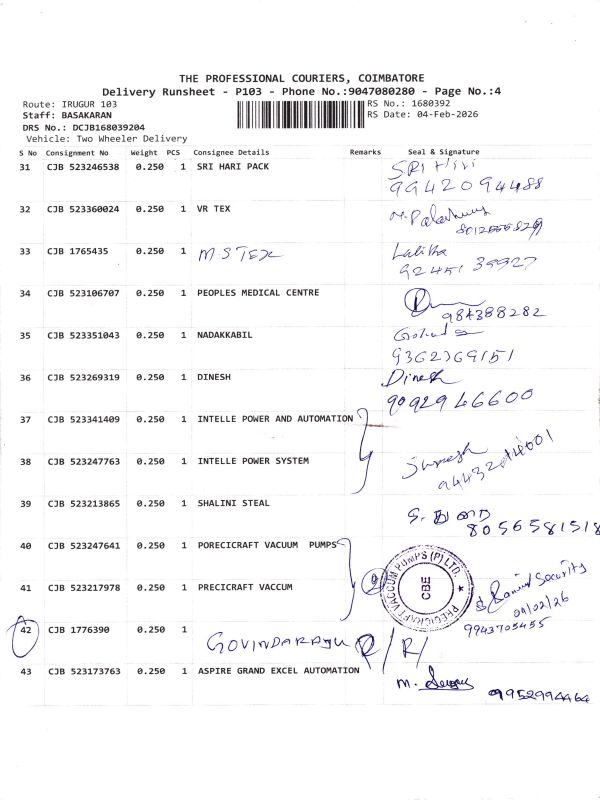 THE PROFESSIONAL COURIERS, COIMBATORE
Delivery Runsheet - P103 - Phone No.:9047080280 - Page No.:4
Route: IRUGUR 103
RS No.: 1680392
Staff: BASAKARAN
RS Date: 04-Feb-2026
DRS No.: DCJB168039204
Vehicle: Two Wheeler Delivery
S No Consignment No Weight PCS Consignee Details Remarks Seal & Signature
31 CJB 523246538 0.250 1 SRI HARI PACK SRI Hari
9942094488
32 CJB 523360024 0.250 1 VR TEX
33 CJB 1765435 0.250 1 M.S TEX Lalitha
92451 39927
34 CJB 523106707 0.250 1 PEOPLES MEDICAL CENTRE
984388282
35 CJB 523351043 0.250 1 NADAKKABIL
9362369151
36 CJB 523269319 0.250 1 DINESH Dinesh
9092946600
37 CJB 523341409 0.250 1 INTELLE POWER AND AUTOMATION
38 CJB 523247763 0.250 1 INTELLE POWER SYSTEM Suresh
39 CJB 523213865 0.250 1 SHALINI STEAL
8056581518
40 CJB 523247641 0.250 1 PORECICRAFT VACUUM PUMPS
PRECICRAFT VACCUM PUMPS (P) LTD.
CBE
41 CJB 523217978 0.250 1 PRECICRAFT VACCUM
Security
04/02/26
9943705455
42 CJB 1776390 0.250 1 GOVINDARAJU R/R/
43 CJB 523173763 0.250 1 ASPIRE GRAND EXCEL AUTOMATION M.
9952994464